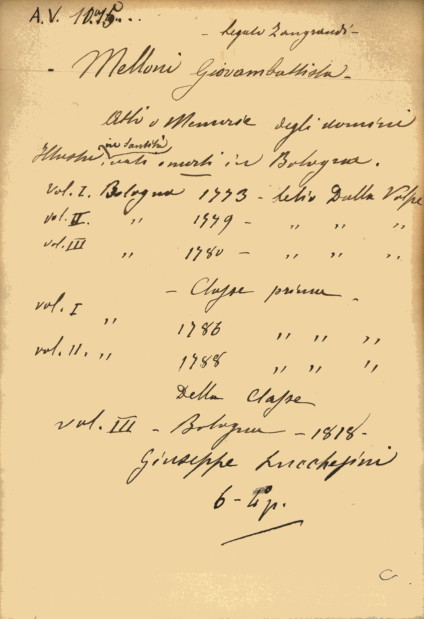 A.V. 1075...
- Legato Zangrandi -
- Melloni Giovambattista -
Atti o Memorie degli uomini
Illustri in santità nati o morti in Bologna.
vol. I. Bologna 1773 - Lelio Dalla Volpe
vol. II. " 1779 - " " "
vol. III " 1780 - " " "
- Classe prima -
vol. I " 1786 " " "
vol. II. " 1788 " " "
Della Classe
vol. III - Bologna - 1818 -
Giuseppe Lucchesini
6 -